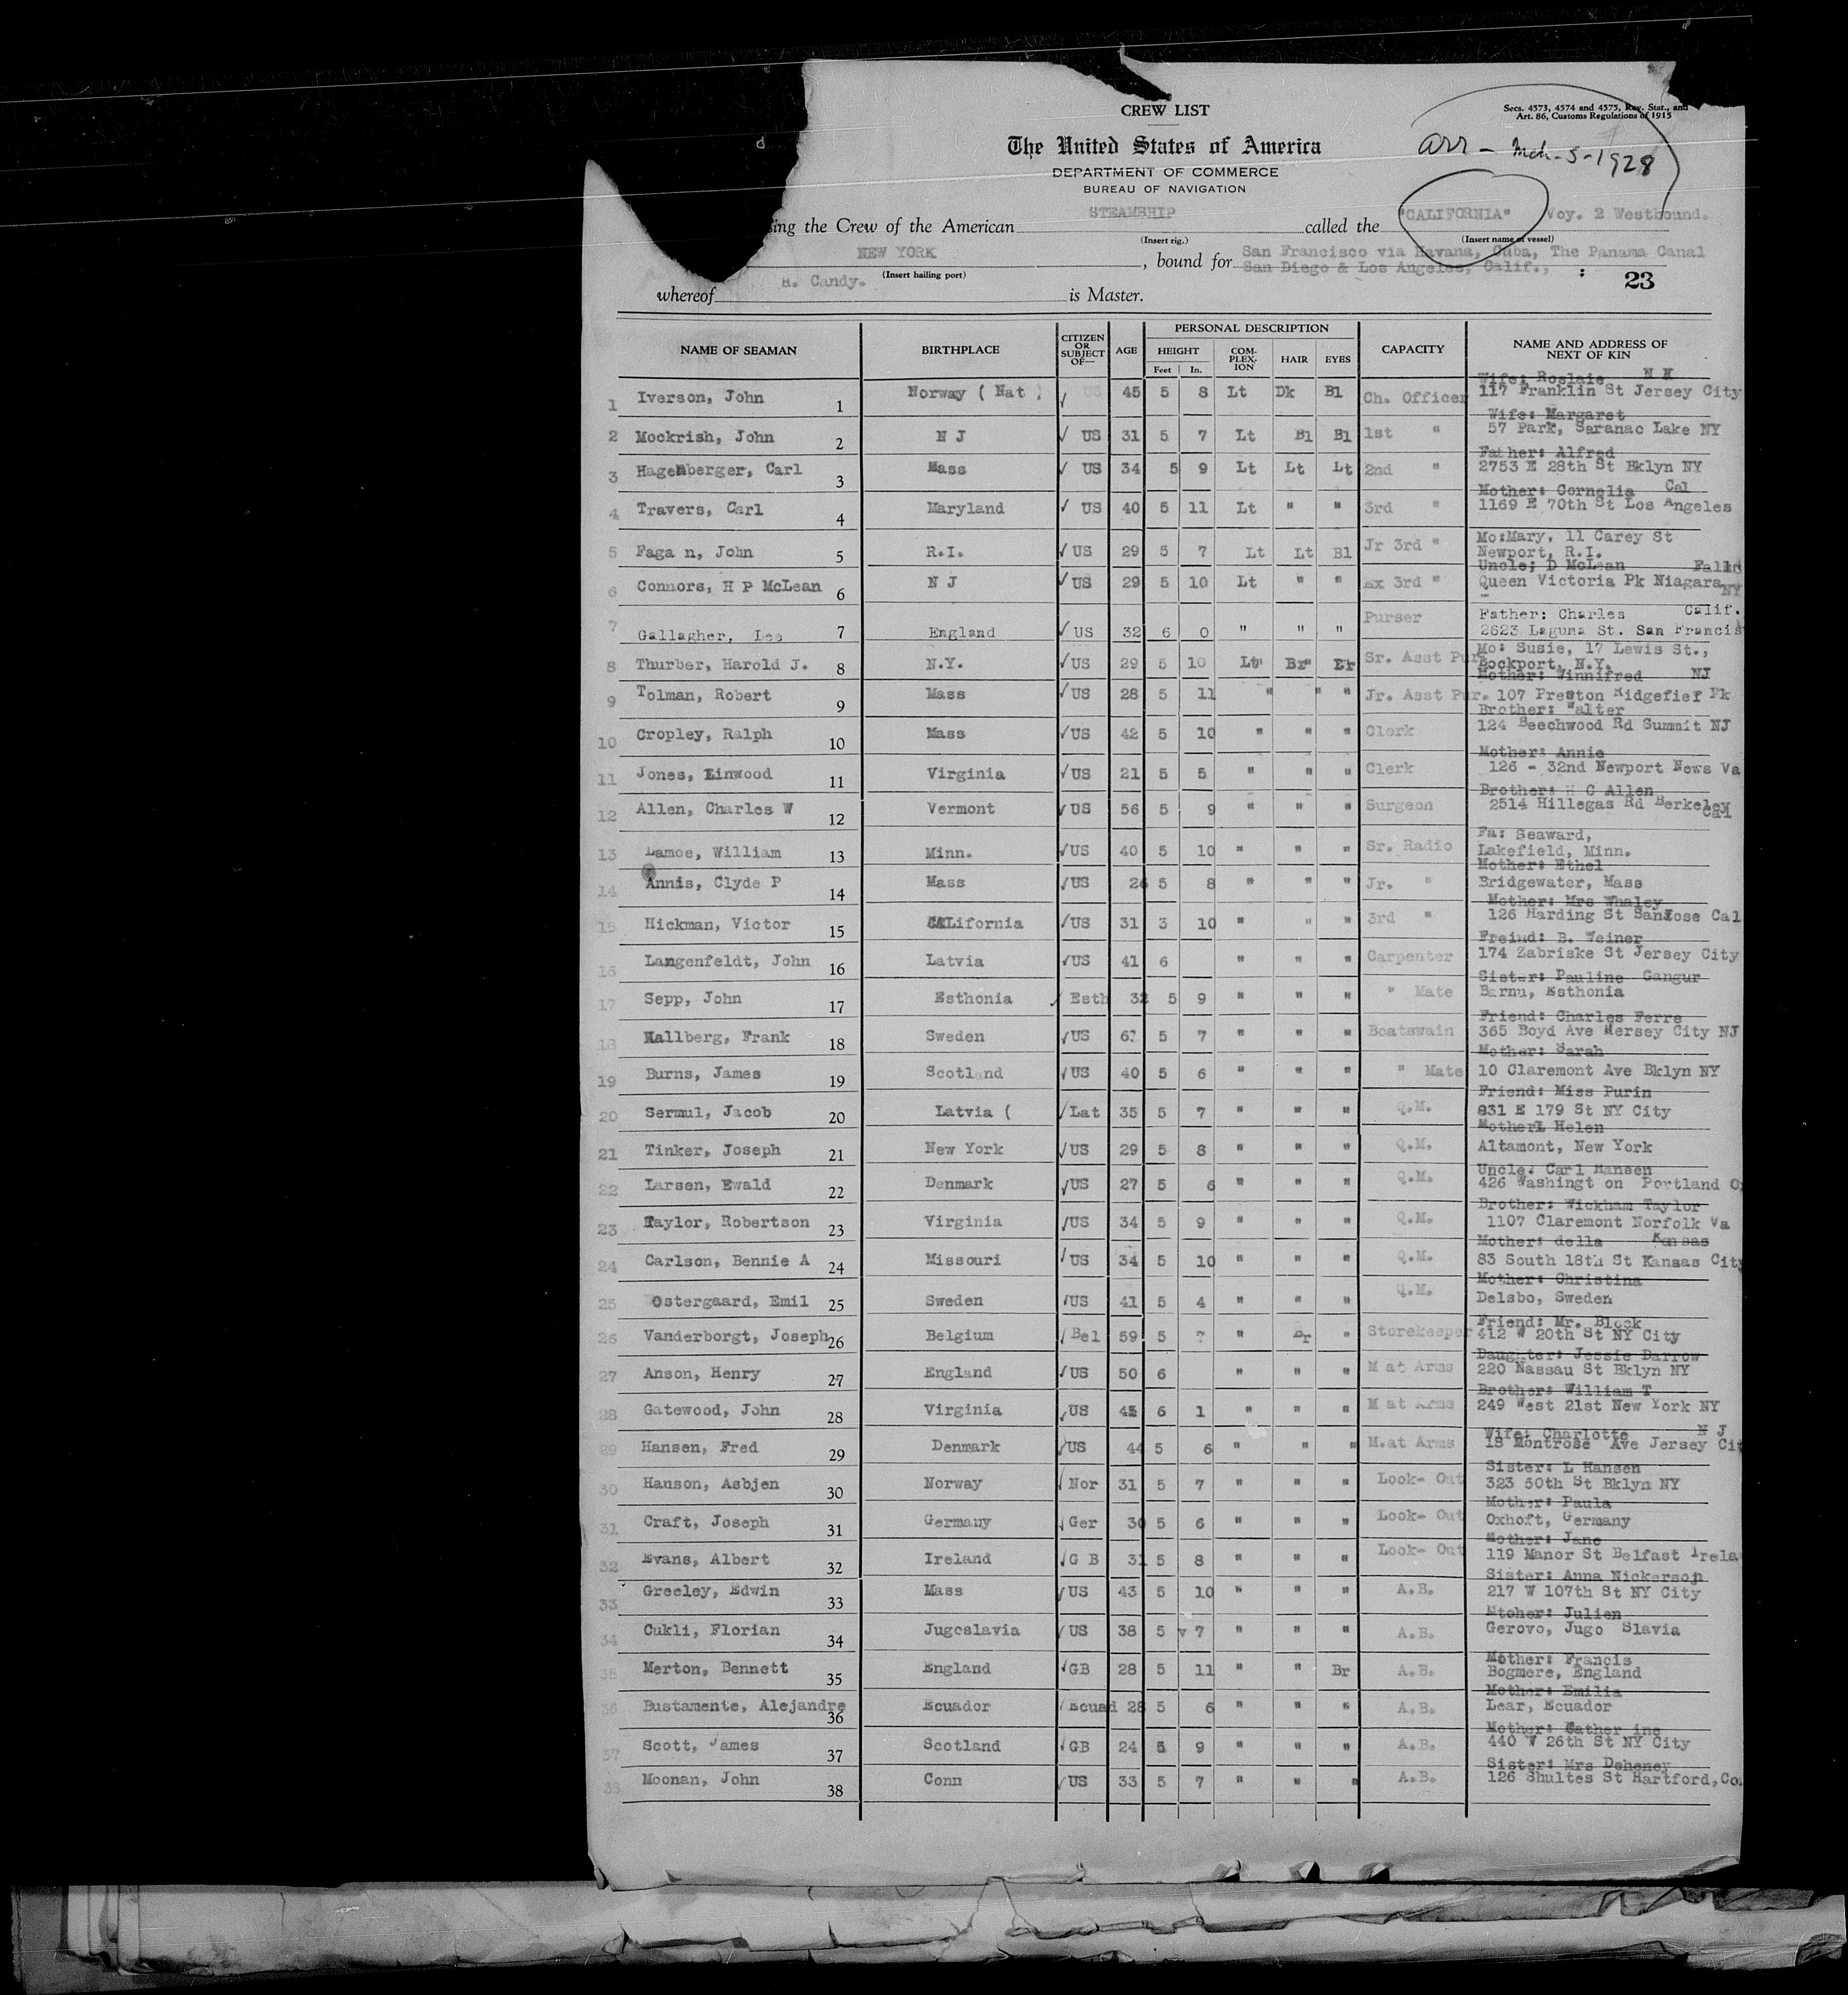 CREW LIST
Secs. 4573, 4574 and 4575, Rev. Stat., and
Art. 86, Customs Regulations of 1915
The United States of America
arr - Mch - 5 - 1928
DEPARTMENT OF COMMERCE
BUREAU OF NAVIGATION
sing the Crew of the American STEAMSHIP called the "CALIFORNIA" Voy. 2 Westbound.
(Insert rig.) (Insert name of vessel)
NEW YORK , bound for San Francisco via Havana, Cuba, The Panama Canal
(Insert hailing port) San Diego & Los Angeles, Calif.,
23
whereof H. Candy. is Master.
NAME OF SEAMAN BIRTHPLACE CITIZEN OR SUBJECT OF— AGE PERSONAL DESCRIPTION CAPACITY NAME AND ADDRESS OF NEXT OF KIN
HEIGHT COM-PLEX-ION HAIR EYES
Feet In.
Wife: Roslaie
1 Iverson, John 1 Norway ( Nat ) US 45 5 8 Lt Dk Bl Ch. Officer 117 Franklin St Jersey City
Wife: Margaret
2 Mockrish, John 2 N J US 31 5 7 Lt Bl Bl 1st " 57 Park, Saranac Lake NY
Father: Alfred
3 Hagenberger, Carl 3 Mass US 34 5 9 Lt Lt Lt 2nd " 2753 E 28th St Bklyn NY
Mother: Cornelia Cal
4 Travers, Carl 4 Maryland US 40 5 11 Lt " " 3rd " 1169 E 70th St Los Angeles
Mo:Mary, 11 Carey St
5 Faga n, John 5 R.I. US 29 5 7 Lt Lt Bl Jr 3rd " Newport, R.I.
Uncle; D McLean Falls
6 Connors, H P McLean 6 N J US 29 5 10 Lt " " Ex 3rd " Queen Victoria Pk Niagara NY
Father: Charles Calif.
7 Gallagher, Leo 7 England US 32 6 0 " " " Purser 2623 Laguna St. San Francis
Mo: Susie, 17 Lewis St.,
8 Thurber, Harold J. 8 N.Y. US 29 5 10 Lt" Br" Br Sr. Asst Pur Lockport, N.Y.
Mother: Winnifred NJ
9 Tolman, Robert 9 Mass US 28 5 11 " " " Jr. Asst Pur. 107 Preston Ridgefief Pk
Brother: Walter
10 Cropley, Ralph 10 Mass US 42 5 10 " " " Clerk 124 Beechwood Rd Summit NJ
Mother: Annie
11 Jones, Linwood 11 Virginia US 21 5 5 " " " Clerk 126 - 32nd Newport News Va
Brother: H C Allen
12 Allen, Charles W 12 Vermont US 56 5 9 " " " Surgeon 2514 Hillegas Rd Berkeley Cal
Fa: Seaward,
13 Lamoe, William 13 Minn. US 40 5 10 " " " Sr. Radio Lakefield, Minn.
Mother: Ethel
14 Annis, Clyde P 14 Mass US 26 5 8 " " " Jr. " Bridgewater, Mass
Mother: Mrs Whaley
15 Hickman, Victor 15 CALifornia US 31 3 10 " " " 3rd " 126 Harding St SanJose Cal
Freind: B. Weiner
16 Langenfeldt, John 16 Latvia US 41 6 " " " Carpenter 174 Zabriske St Jersey City
Sister: Pauline Gangur
17 Sepp, John 17 Esthonia Esth 32 5 9 " " " " Mate Barnu, Esthonia
Friend: Charles Ferre
18 Hallberg, Frank 18 Sweden US 5 7 " " " Boatswain 365 Boyd Ave Mersey City NJ
Mother: Sarah
19 Burns, James 19 Scotland US 40 5 6 " " " " Mate 10 Claremont Ave Bklyn NY
Friend: Miss Purin
20 Sermul, Jacob 20 Latvia ( Lat 35 5 7 " " " Q.M. 831 E 179 St NY City
MotherL Helen
21 Tinker, Joseph 21 New York US 29 5 8 " " " Q.M. Altamont, New York
Uncle: Carl Hansen
22 Larsen, Ewald 22 Denmark US 27 5 6 " " " Q.M. 426 Washingt on Portland O
Brother: Wickham Taylor
23 Taylor, Robertson 23 Virginia US 34 5 9 " " " Q.M. 1107 Claremont Norfolk Va
Mother: della Kansas
24 Carlson, Bennie A 24 Missouri US 34 5 10 " " " Q.M. 83 South 18th St Kansas City
Mother: Christina
25 Ostergaard, Emil 25 Sweden US 41 5 4 " " " Q.M. Delsbo, Sweden
Friend: Mr. Block
26 Vanderborgt, Joseph 26 Belgium Bel 59 5 " Br " Storekeeper 412 W 20th St NY City
Daughter: Jessie Darrow
27 Anson, Henry 27 England US 50 6 " " " M at Arms 220 Nassau St Bklyn NY
Brother: William T
28 Gatewood, John 28 Virginia US 6 1 " " " M at Arms 249 West 21st New York NY
Wife: Charlotte N J
29 Hansen, Fred 29 Denmark US 44 5 6 " " " M.at Arms 18 Montrose Ave Jersey Cit
Sister: L Hansen
30 Hanson, Asbjen 30 Norway Nor 31 5 7 " " " Look- Out 323 50th St Bklyn NY
Mother: Paula
31 Craft, Joseph 31 Germany Ger 30 5 6 " " " Look- Out Oxhoft, Germany
Mother: Jane
32 Evans, Albert 32 Ireland G B 31 5 8 " " " Look- Out 119 Manor St Belfast Irela
Sister: Anna Nickerson
33 Greeley, Edwin 33 Mass US 43 5 10 " " " A.B. 217 W 107th St NY City
Mtoher: Julien
34 Cukli, Florian 34 Jugoslavia US 38 5 7 " " " A.B. Gerovo, Jugo Slavia
Mother: Francis
35 Merton, Bennett 35 England GB 28 5 11 " " Br A.B. Bogmere, England
Mother: Emilia
36 Bustamente, Alejandre 36 Ecuador Ecuad 28 5 6 " " " A.B. Lear, Ecuador
Mother: Cather ine
37 Scott, James 37 Scotland GB 24 5 9 " " " A.B. 440 W 26th St NY City
Sister: Mrs Deheney
38 Moonan, John 38 Conn US 33 5 7 " " " A.B. 126 Shultes St Hartford,Co